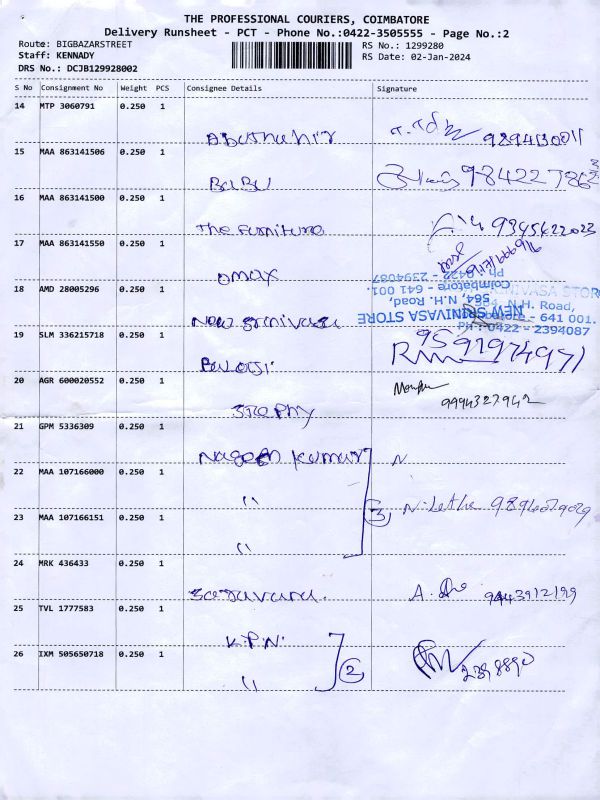 THE PROFESSIONAL COURIERS, COIMBATORE
Delivery Runsheet - PCT - Phone No.:0422-3505555 - Page No.:2
Route: BIGBAZARSTREET
RS No.: 1299280
Staff: KENNADY
RS Date: 02-Jan-2024
DRS No.: DCJB129928002
S No Consignment No Weight PCS Consignee Details Signature
14 MTP 3060791 0.250 1
Abuthahir 9894130011
15 MAA 863141506 0.250 1
BABU
16 MAA 863141500 0.250 1
The Furniture 9345422023
17 MAA 863141550 0.250 1
omax
18 AMD 28005296 0.250 1
New Srinivasa
NEW SRINIVASA STORE
564, N.H. Road,
Coimbatore - 641 001.
Ph : 0422 - 2394087
19 SLM 336215718 0.250 1
Balaji 9591974971
20 AGR 600020552 0.250 1
9994327942
21 GPM 5336309 0.250 1
Nagesh Kumar N
22 MAA 107166000 0.250 1
"
3
23 MAA 107166151 0.250 1
"
24 MRK 436433 0.250 1
A. 9443912199
25 TVL 1777583 0.250 1
K.P.N.
26 IXM 505650718 0.250 1
" 2